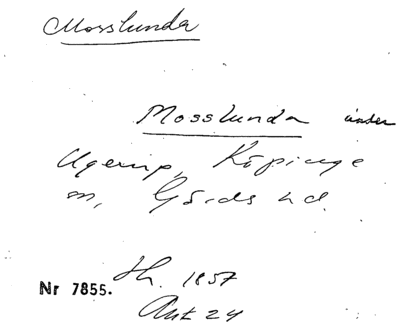 Mosslunda
Mosslunda under
Ugerup, Köpinge
sn, Gärds hd.
Nr 7855. Sk. 1857
Ant 24